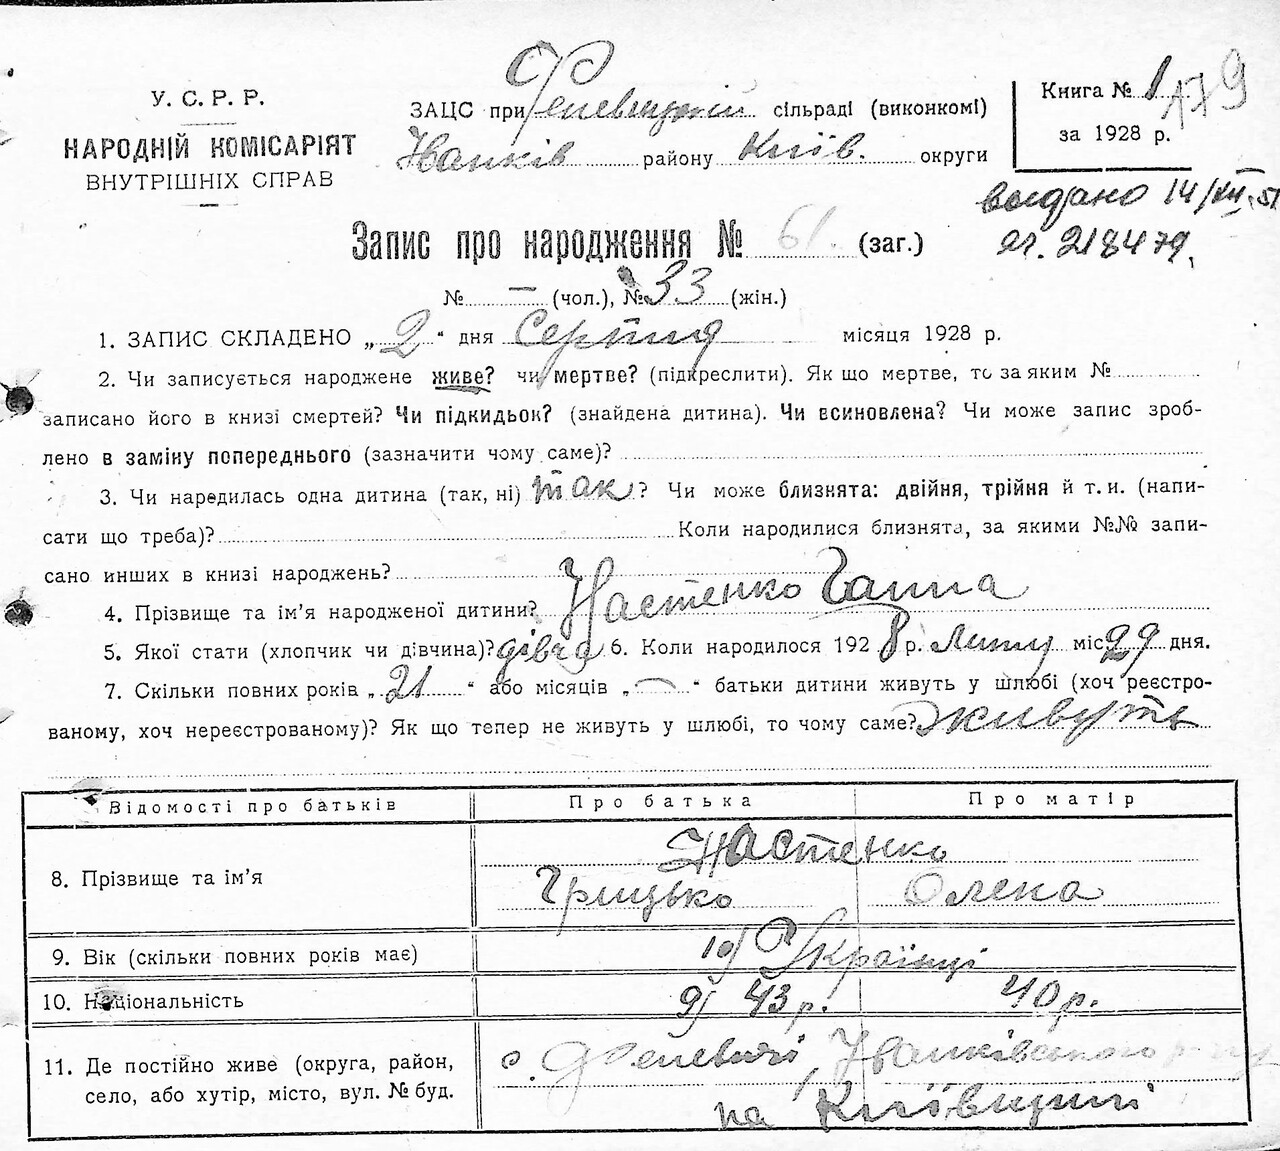 У. С. Р. Р.
НАРОДНІЙ КОМІСАРІЯТ
ВНУТРІШНІХ СПРАВ
ЗАЦС при Феневицкій сільраді (виконкомі)
Іванків району Київ. округи
Книга № 1 179
за 1928 р.
выдано 14/XII.51
Запис про народження № 61. (заг.)
№ — (чол.), № 33 (жін.)
1. ЗАПИС СКЛАДЕНО „2“ дня Серпня місяця 1928 р.
2. Чи записується народжене живе? чи мертве? (підкреслити). Як що мертве, то за яким №
записано його в книзі смертей? Чи підкидьок? (знайдена дитина). Чи всиновлена? Чи може запис зроб-
лено в заміну попереднього (зазначити чому саме)?
3. Чи наредилась одна дитина (так, ні) так? Чи може близнята: двійня, трійня й т. и. (напи-
сати що треба)? Коли народилися близнята, за якими №№ запи-
сано инших в книзі народжень?
4. Прізвище та ім’я народженої дитини? Настенко Ганна
5. Якої стати (хлопчик чи дівчина)? дівча 6. Коли народилося 1928 р. Липня міс 29 дня.
7. Скільки повних років „21“ або місяців „—“ батьки дитини живуть у шлюбі (хоч реєстро-
ваному, хоч нереєстрованому)? Як що тепер не живуть у шлюбі, то чому саме? живуть
Відомості про батьків Про батька Про матір
Настенко
8. Прізвище та ім’я Грицько Олена
9. Вік (скільки повних років має) 10) Українці
10. Національність 9) 43 р. 40 р.
11. Де постійно живе (округа, район, с. Феневичі, Іванківського р-ну
село, або хутір, місто, вул. № буд. на Київщині